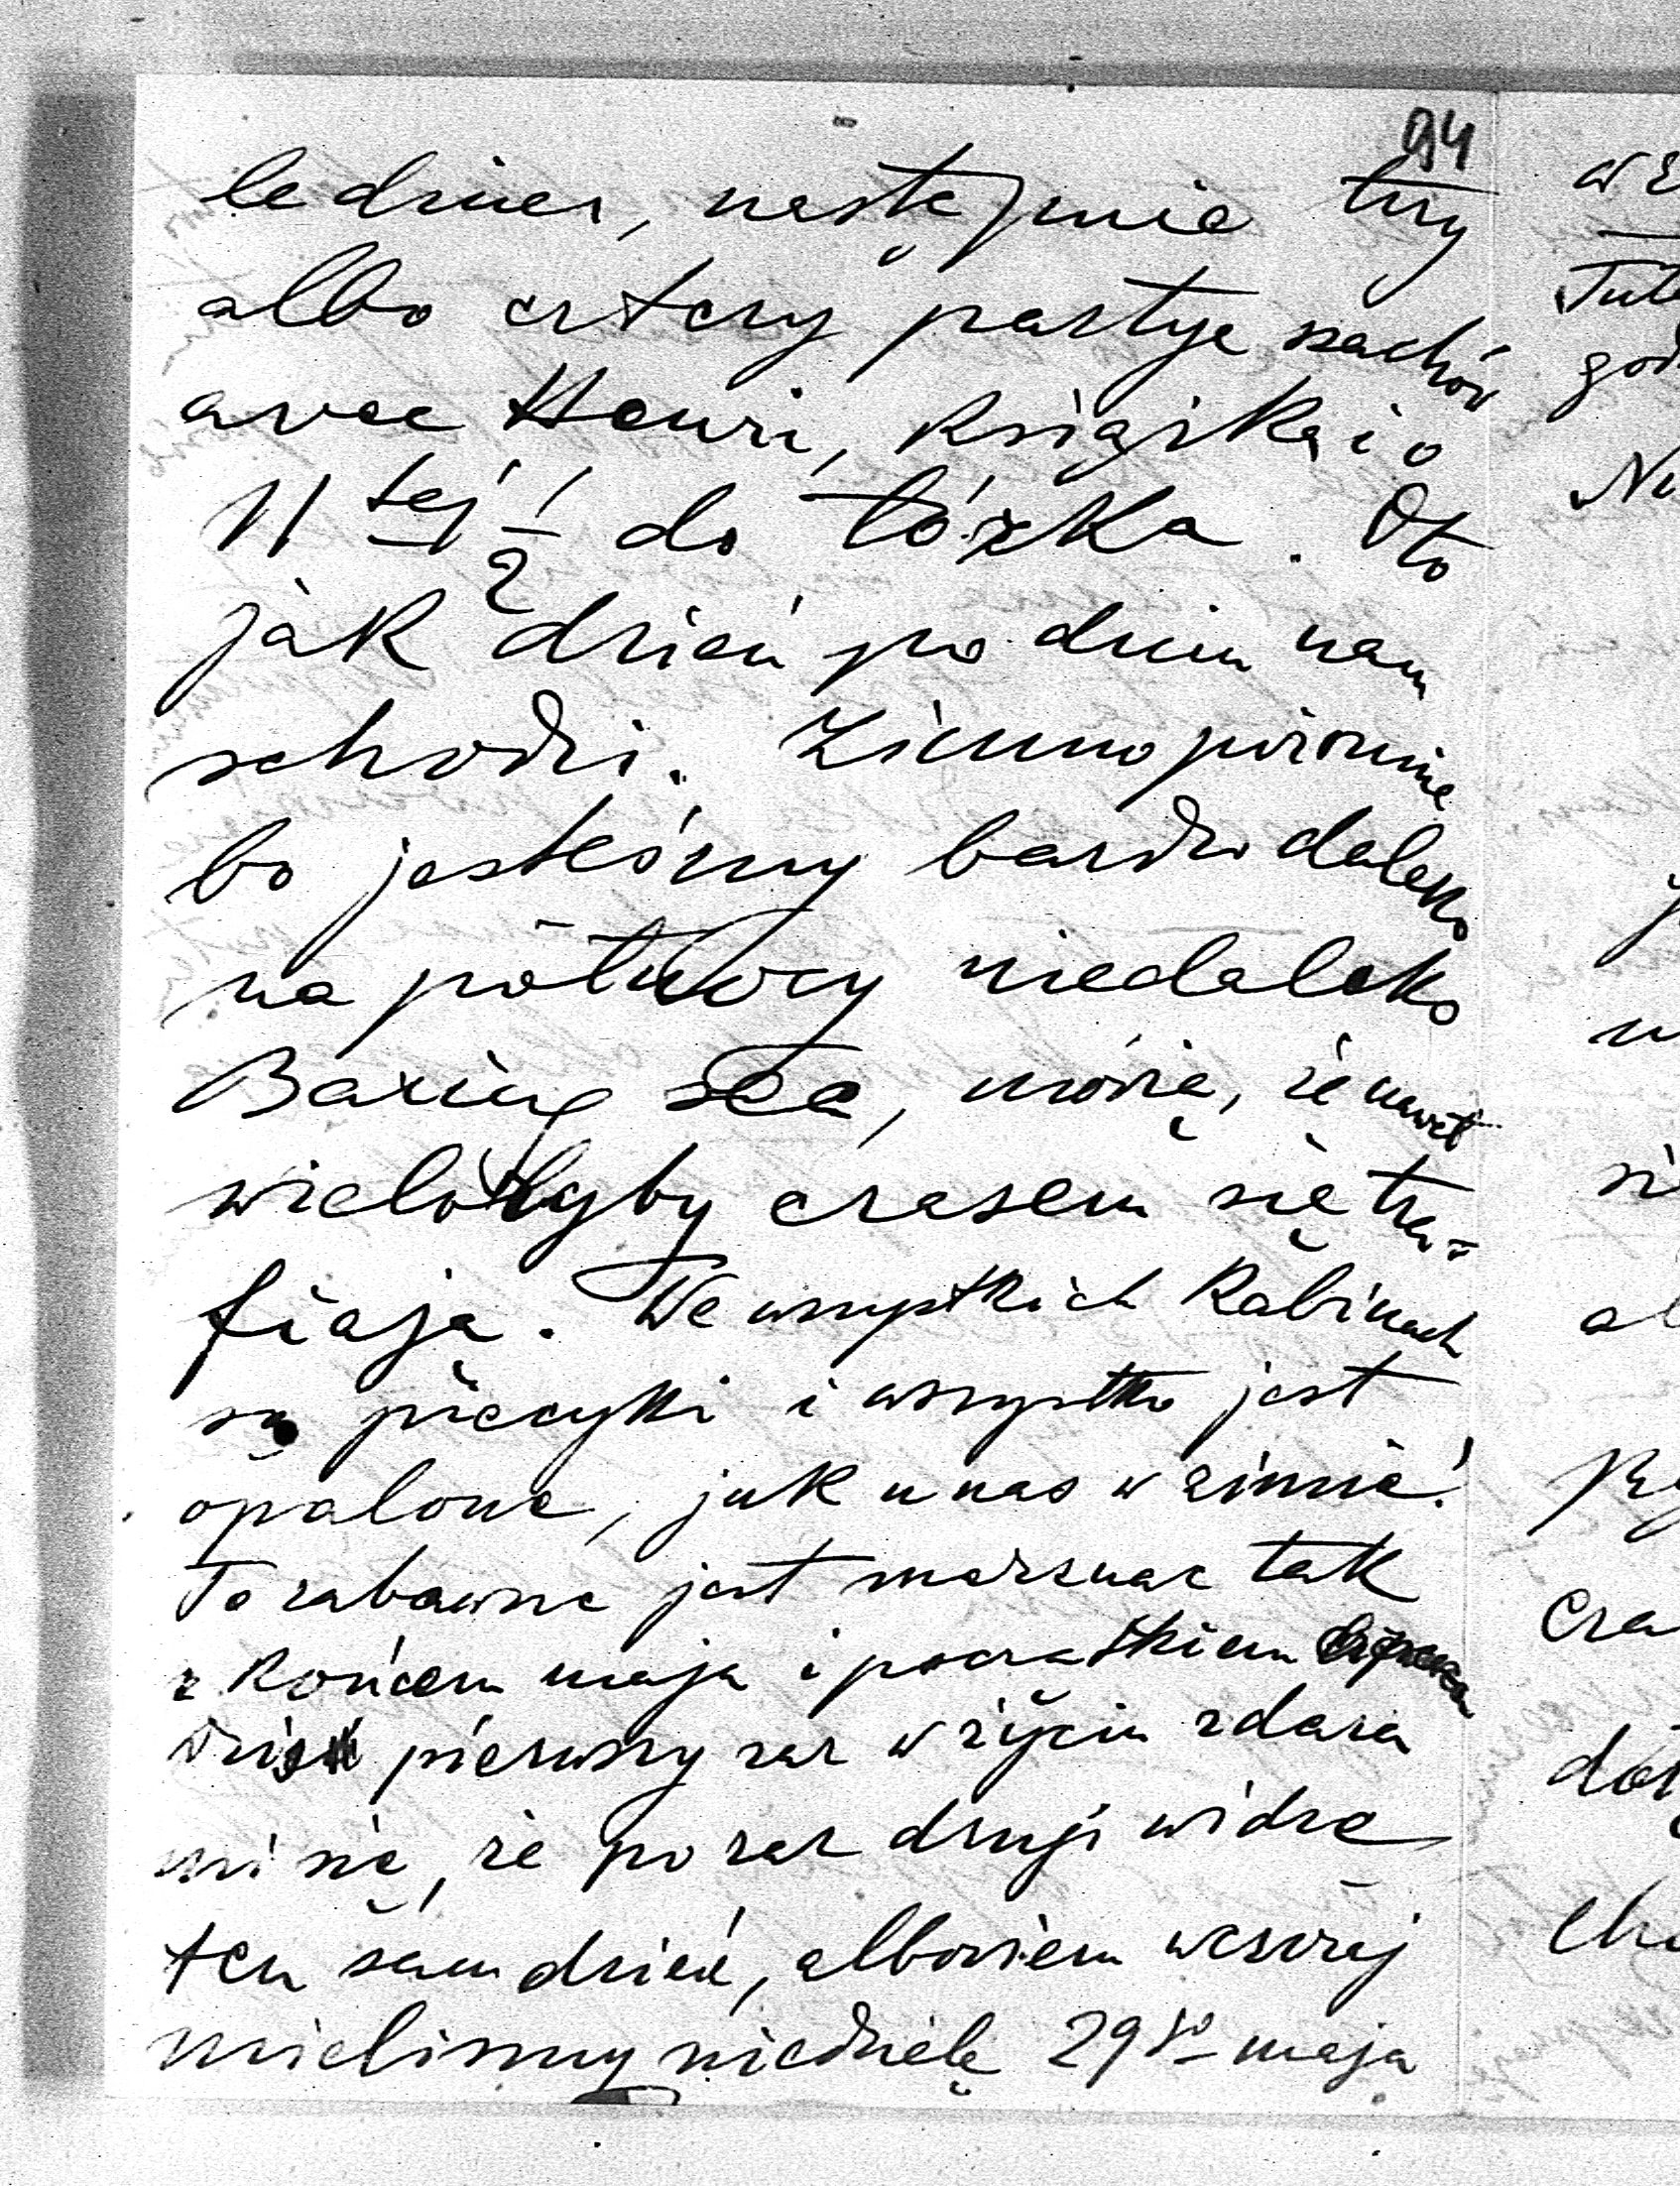 94
le diner, następnie trzy
albo cztery partye szachów
avec Henri, książka i o
11 tej 1/2 do łóżka. Oto
jak dzień po dniu nam
schodzi. Zimno piorunnie
bo jesteśmy bardzo daleko
na północy niedaleko
Baring sea, mówią, że nawet
wieloryby czasem się tra-
fiają. We wszystkich kabinach
są piecyki i wszystko jest
opalone, jak u nas w zimie!
To zabawne jest marznąć tak
z końcem maja i początkiem
Dziś pierwszy raz w życiu zdarza
mi się, że po raz drugi widzę
ten sam dzień, albowiem wczoraj
mieliśmy niedzielę 29go maja